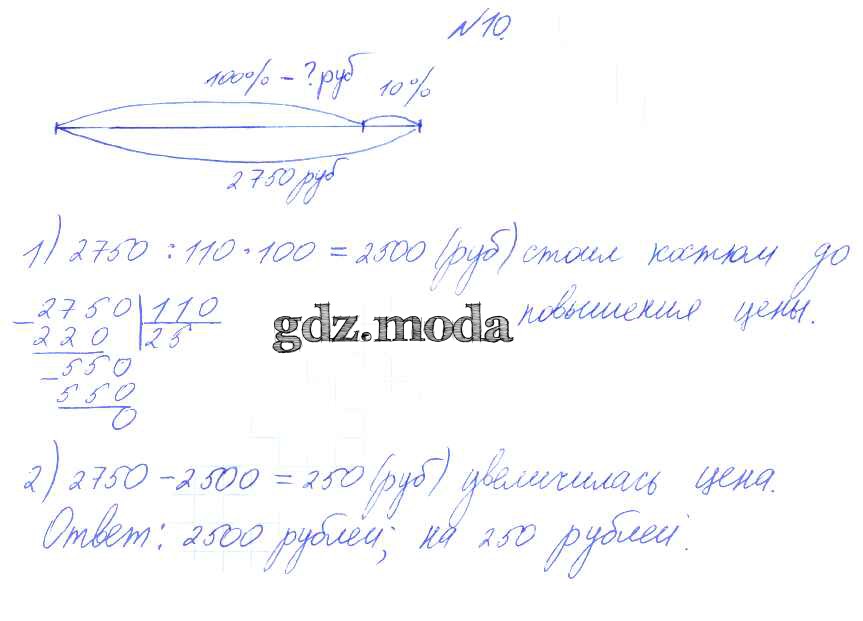 №10.
100% – ? руб 10%
2750 руб
1) 2750 : 110 · 100 = 2500 (руб) стоил костюм до
повышения цены.
– 2750 | 110
220 25
– 550
550
0
gdz.moda
2) 2750 – 2500 = 250 (руб) увеличилась цена.
Ответ: 2500 рублей; на 250 рублей.